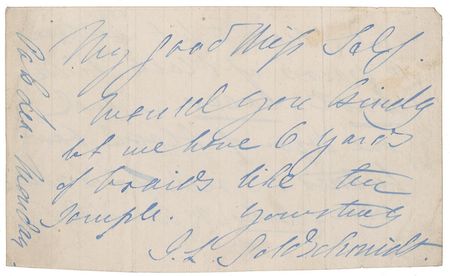 My good Miss Self.
Would you kindly
let me have 6 yards
of braids like the
sample. Yours truly
J. L. Goldschmidt.
Monday